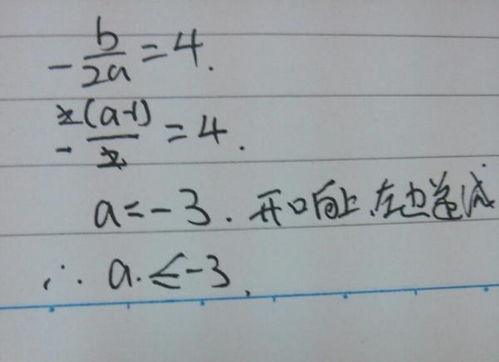 -b/2a=4.
-2(a-1)/2=4.
a=-3.开口向上,左边递减
∴a.≤-3.